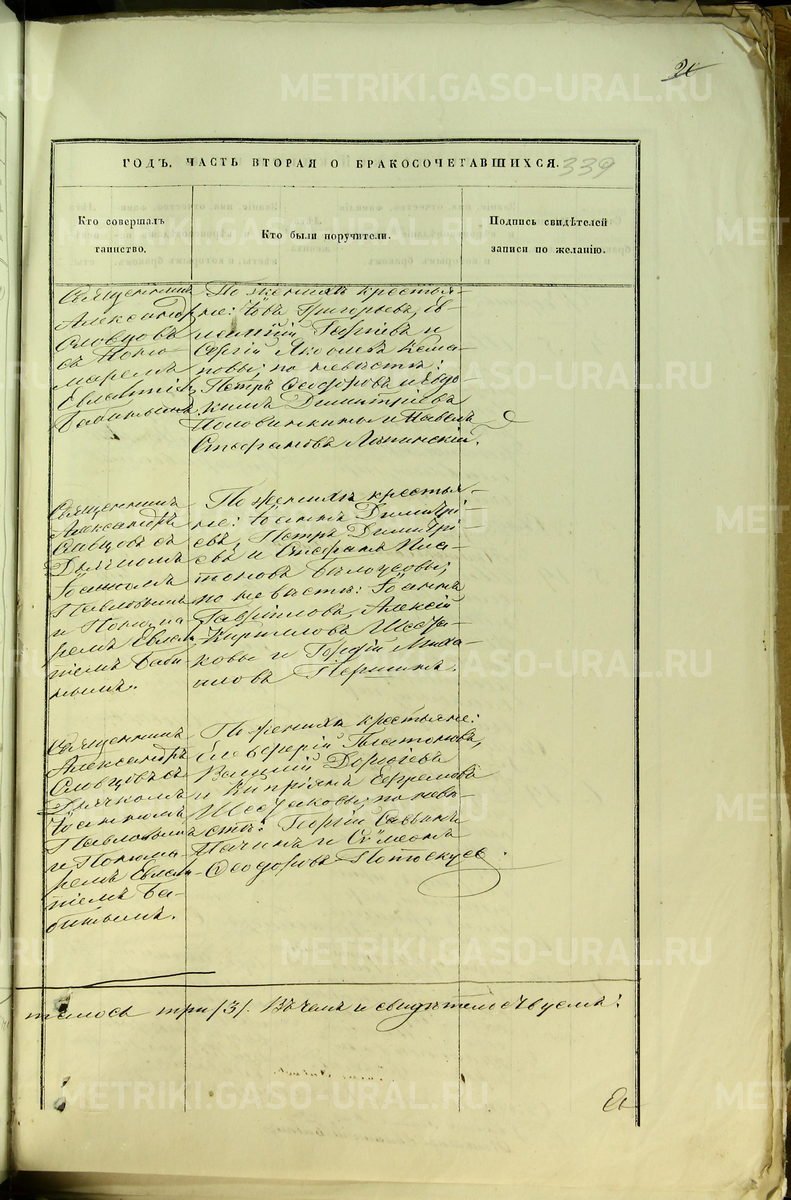 20
ГОДЪ, ЧАСТЬ ВТОРАЯ О БРАКОСОЧЕТАВШИХСЯ. 339
Кто совершалъ
таинство.
Кто были поручители.
Подпись свидѣтелей
записи по желанію.
Священникъ
Александръ
Словцовъ
съ Поно-
маремъ
Евлампіемъ
Бабинымъ.
По женихѣ крестья-
не: Іовъ Григорьевъ, Ев-
Сергій Яковлевъ
по невѣстѣ:
Петръ Ѳеодоровъ и Евдо-
кимъ Димитріевъ
Половинкины и Павелъ
Стефановъ Лапинскій.
Священникъ
Александръ
Словцовъ съ
Дьячкомъ
Іоанномъ
Павловымъ
и Понома-
ремъ Евлам-
піемъ Баби-
нымъ.
По женихѣ крестья-
не: Іоаннъ Димитрі-
евъ, Петръ Димитрі-
евъ и Стефанъ Пла-
тоновъ Бѣлоусовы;
по невѣстѣ: Іоаннъ
Гавриловъ, Алексій
Кирилловъ Шесѳа-
ковы и Гордій Миха-
иловъ Першинъ.
Священникъ
Александръ
Словцовъ съ
Дьячкомъ
Іоанномъ
Павловымъ
и Понома-
ремъ Евлам-
піемъ Ба-
бинымъ.
По женихѣ крестьяне:
Елевѳерій Платоновъ,
Василій Дороѳеевъ
и Кипріянъ Ефремовъ
Шесѳаковы; по невѣ-
стѣ: Георгій Саввинъ
Пачинъ и Сѵмеонъ
Ѳеодоровъ Потоскуевъ.
талось три /3/. Въ чемъ и свидѣтельствуемъ:
METRIKI.GASO-URAL.RU